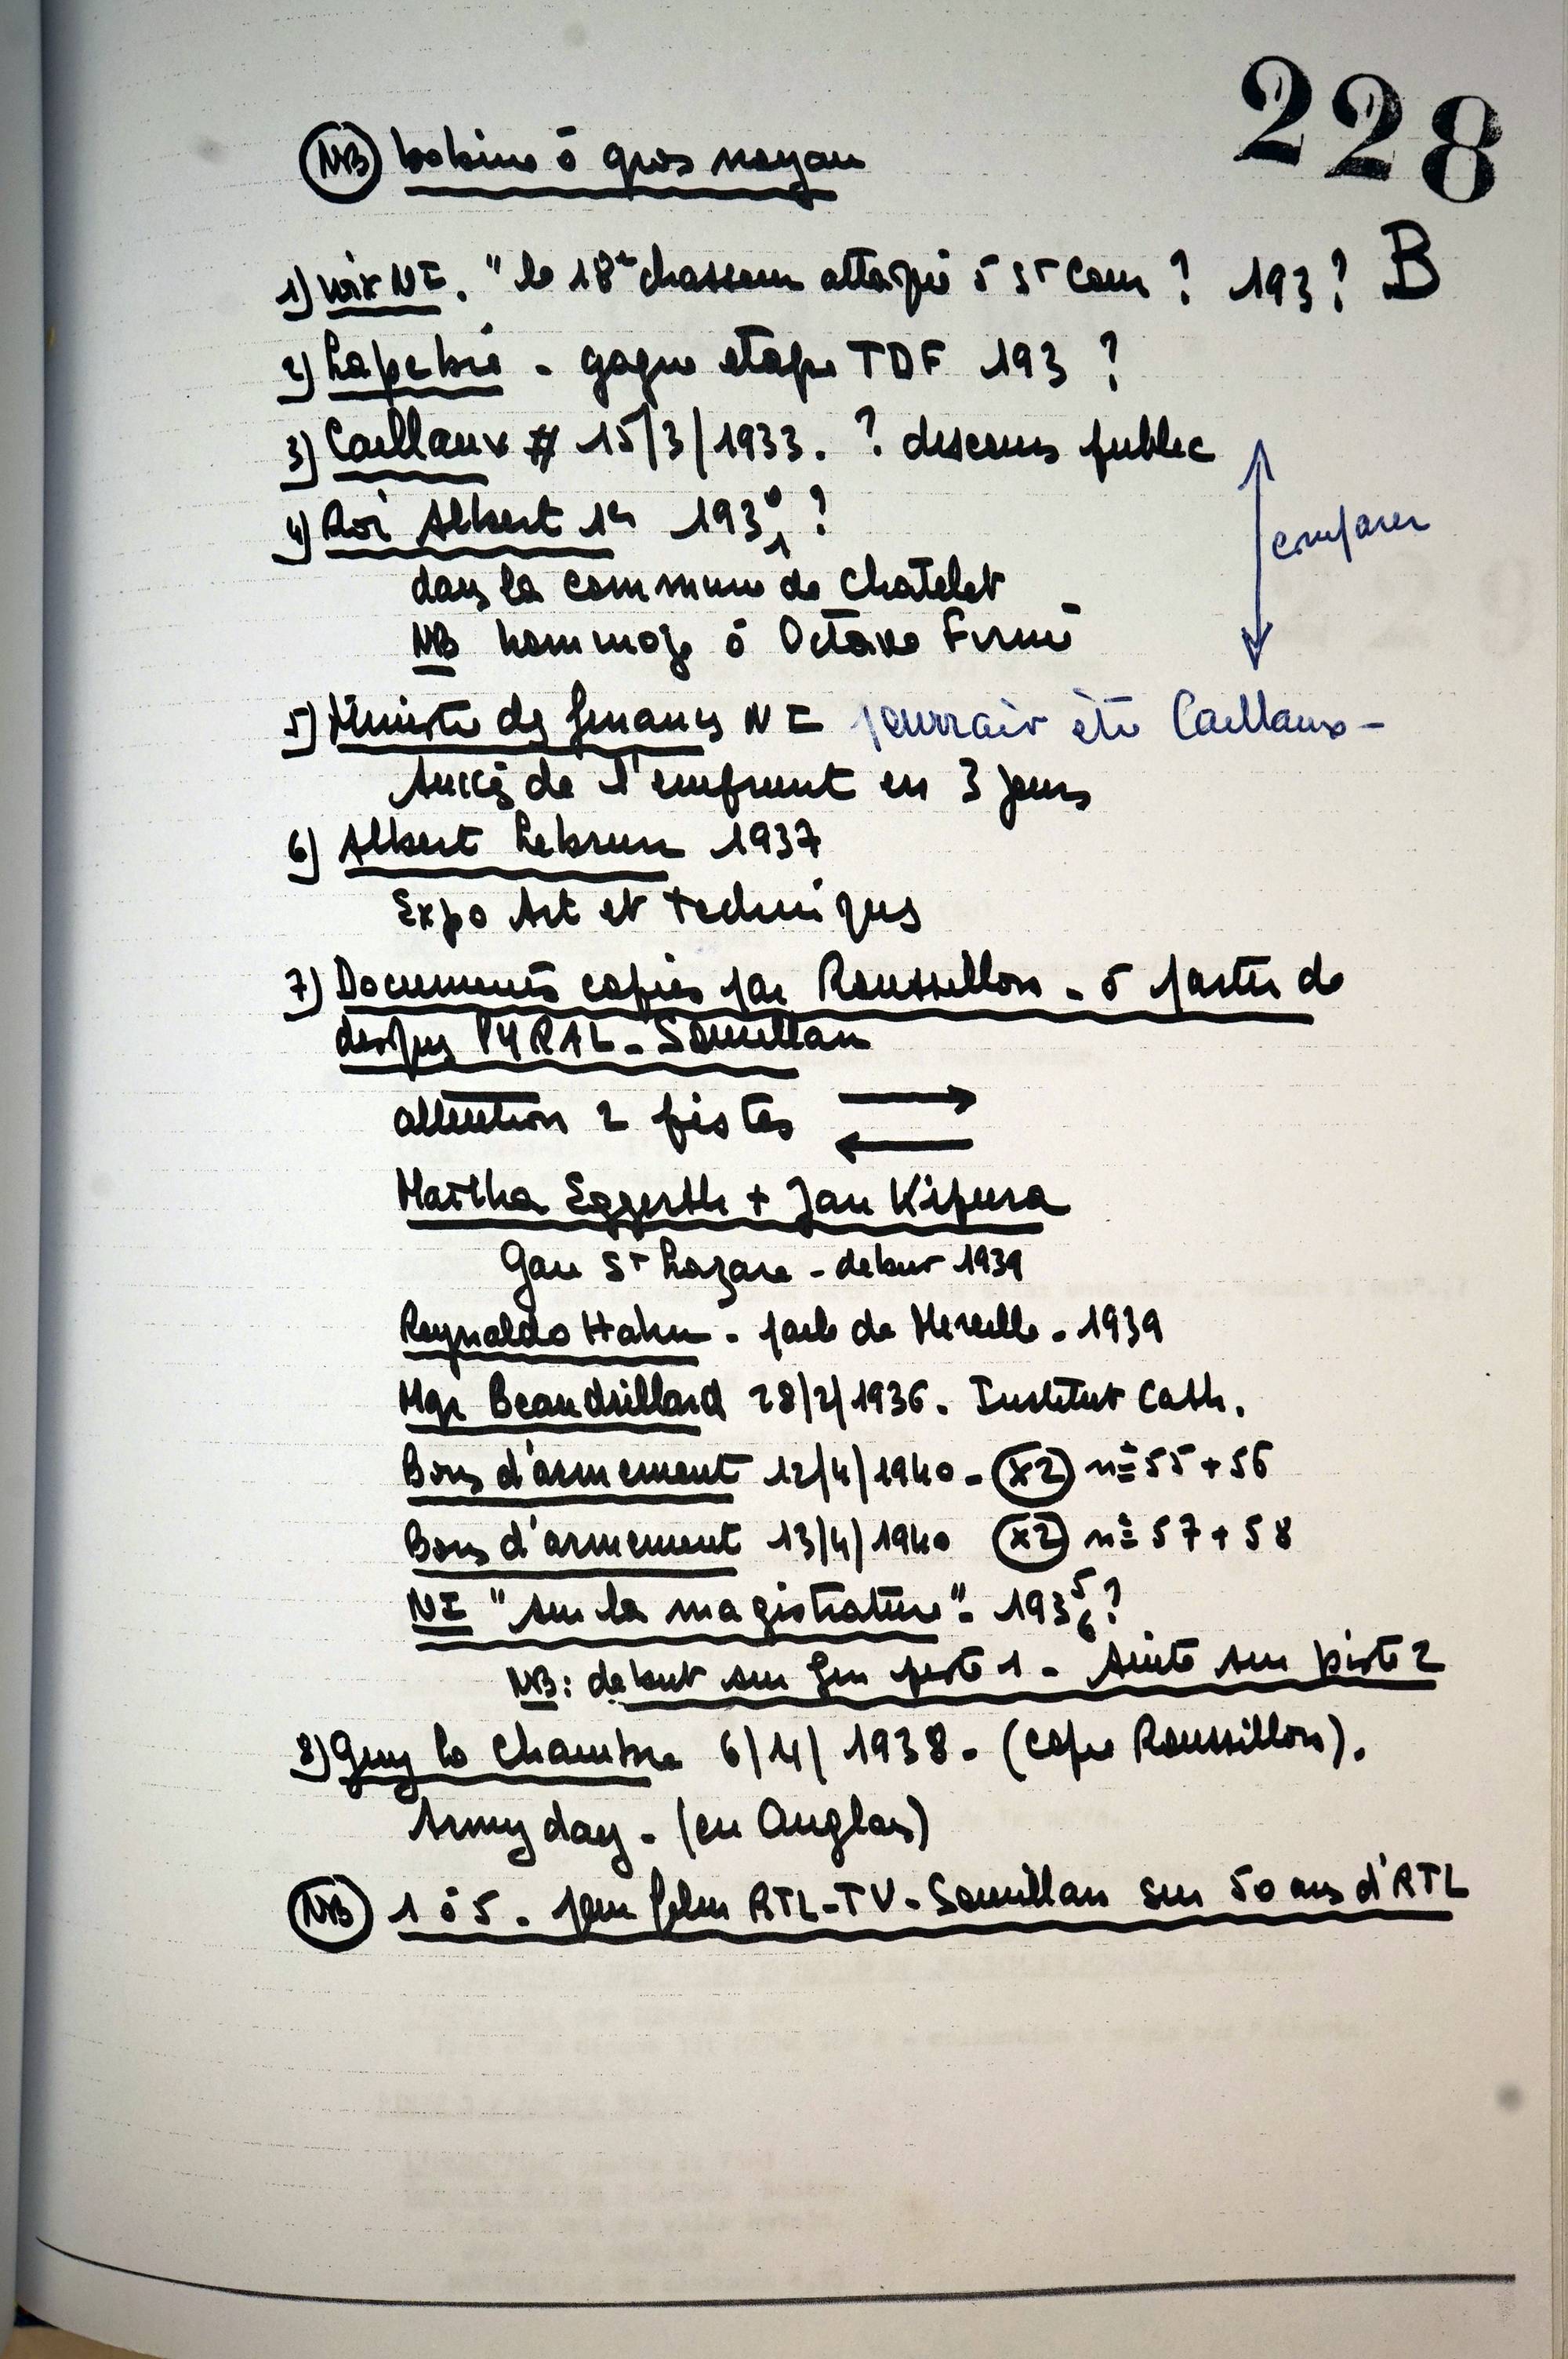 228
NB bobine à gros noyau
1) voix NI. "le 18e chasseur attaqué à St Cour ? 193? B
2) Lapebie - gagne étape TDF 193 ?
3) Caillaux # 15/3/1933. ? discours public
4) Roi Albert 1er 1930/1 ?
comparer
dans la commune de Chatelet
NB hommage à Octave
5) Ministre des finances NI pourrait être Caillaux -
Succès de l'emprunt en 3 jours
6) Albert Lebrun 1937
Expo Art et Techniques
7) Documents copiés par Roussillon - à partir de
disques PYRAL - Souvillan
attention 2 pistes → ←
Martha Eggerth + Jan Kipura
Gare St Lazare - début 1939
Reynaldo Hahn - parle de Mireille - 1939
Mgr Beaudrillard 28/2/1936. Institut Cath.
Bons d'armement 12/4/1940 - (x2) n° 55 + 56
Bons d'armement 13/4/1940 (x2) n° 57 + 58
NI "sur la magistrature" - 1935/6 ?
NB : début sur fin piste 1 - Suite sur piste 2
8) Guy la Chambre 6/4/1938 - (copie Roussillon).
Army day - (en Anglais)
NB 1 à 5. pour film RTL-TV - Souvillan sur 50 ans d'RTL